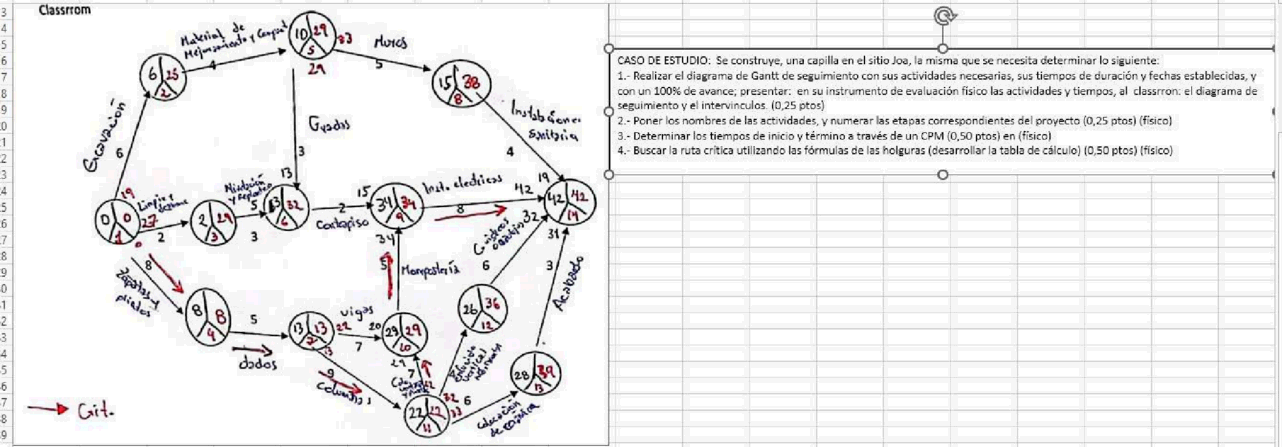 Classrrom
CASO DE ESTUDIO: Se construye, una capilla en el sitio Joa, la misma que se necesita determinar lo siguiente:
1.- Realizar el diagrama de Gantt de seguimiento con sus actividades necesarias, sus tiempos de duración y fechas establecidas, y
con un 100% de avance; presentar: en su instrumento de evaluación físico las actividades y tiempos, al classrron: el diagrama de
seguimiento y el intervinculos. (0,25 ptos)
2.- Poner los nombres de las actividades, y numerar las etapas correspondientes del proyecto (0,25 ptos) (físico)
3.- Determinar los tiempos de inicio y término a través de un CPM (0,50 ptos) en (físico)
4.- Buscar la ruta crítica utilizando las fórmulas de las holguras (desarrollar la tabla de cálculo) (0,50 ptos) (físico)
Material de
Mejoramiento y
4
10 29
5
33
29
Muros
5
6 25
2
15 38
8
Excavación
6
Gradas
3
Sanitaria
4
19
0 0
1
19
27
Limpieza
2
2 29
3
y Replanteo
5
3
13
32
6
Contrapiso
2
15
34 34
9
34
Inst. electricas
8
42
42 42
14
32
31
Zapatas y
8
8 8
4
5
dados
13 13
22
13
vigas
7
20
29 29
10
29
5
Mamposteria
Columnas
9
7
22 22
11
32
33
6
26 36
12
6
28 39
13
3
Acabado
Colocación
Crit.